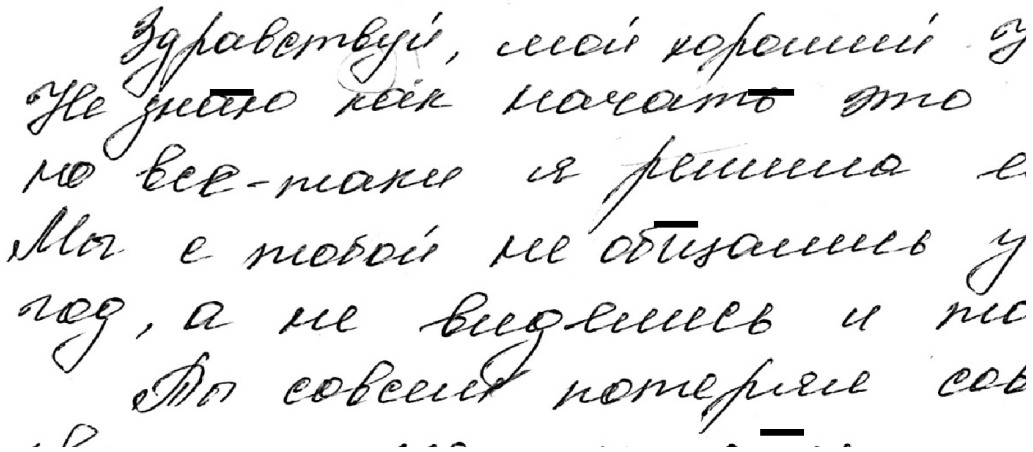 Здравствуй, мой хороший
Не знаю как начать это
но все-таки я решила
Мы с тобой не общались
год, а не виделись и
Ты совсем потерял